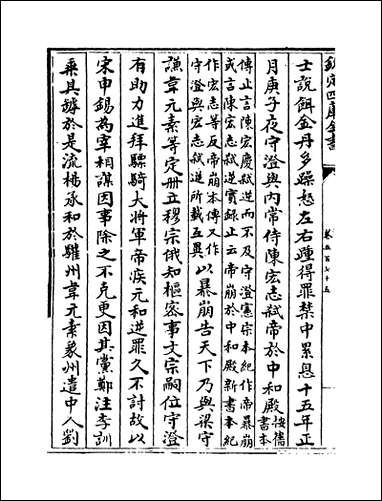 欽定四庫全書
卷五百七十五
士說餌金丹多躁怒左右踵得罪禁中累息十五年正
月庚子夜守澄與内常侍陳宏志弑帝於中和殿
按舊
書本
傳止言陳宏慶弑逆而不及守澄憲宗本紀作帝暴崩
或言陳宏志弑逆實録止云帝崩於中和殿新書本紀
作宏志等反帝崩本傳又作
守澄與宏志弑逆所載互異
以暴崩告天下乃與梁守
謙韋元素等定册立穆宗俄知樞密事文宗嗣位守澄
有助力進拜驃騎大將軍帝疾元和逆罪久不討故以
宋申錫為宰相謀因事除之不克更因其黨鄭注李訓
乘其罅於是流楊承和於驩州韋元素象州遣中人劉